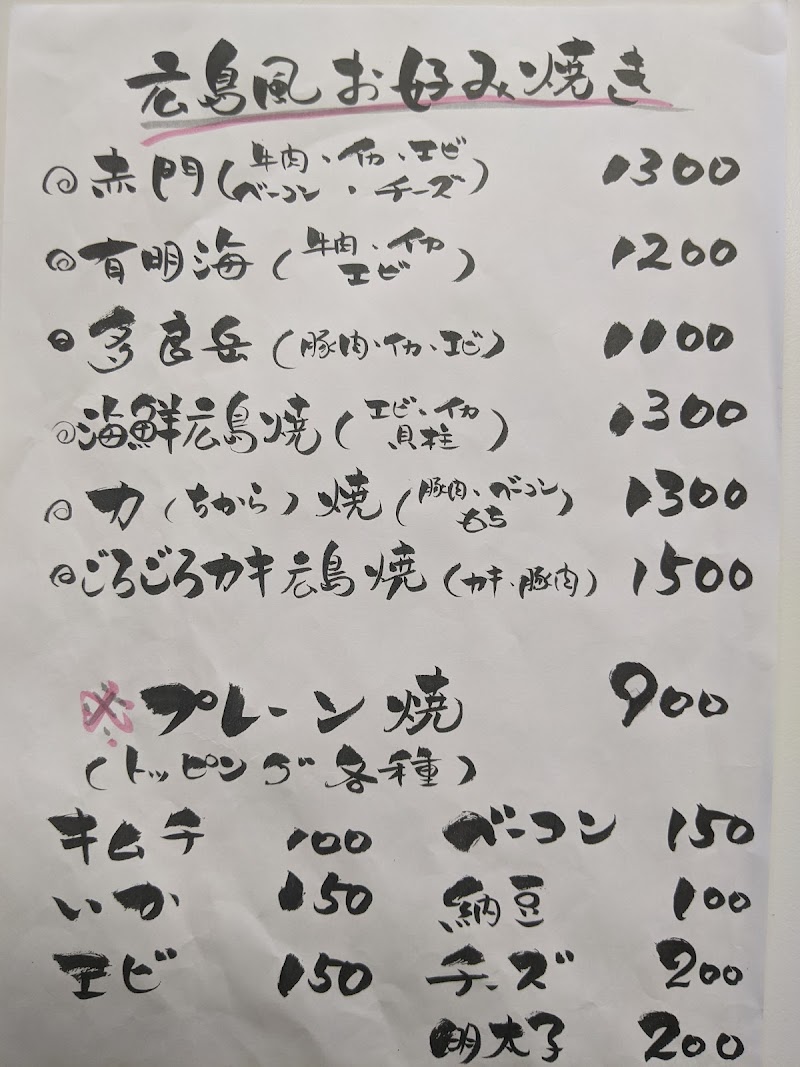 広島風お好み焼き
赤門(牛肉・イカ・エビ
ベーコン・チーズ) 1300
有明海(牛肉・イカ
エビ) 1200
多良岳(豚肉・イカ・エビ) 1100
海鮮広島焼(エビ・イカ
貝柱) 1300
力(ちから)焼(豚肉・ベーコン
もち) 1300
ごろごろカキ広島焼(カキ・豚肉) 1500
※プレーン焼 900
(トッピング各種)
キムチ 100 ベーコン 150
いか 150 納豆 100
エビ 150 チーズ 200
明太子 200